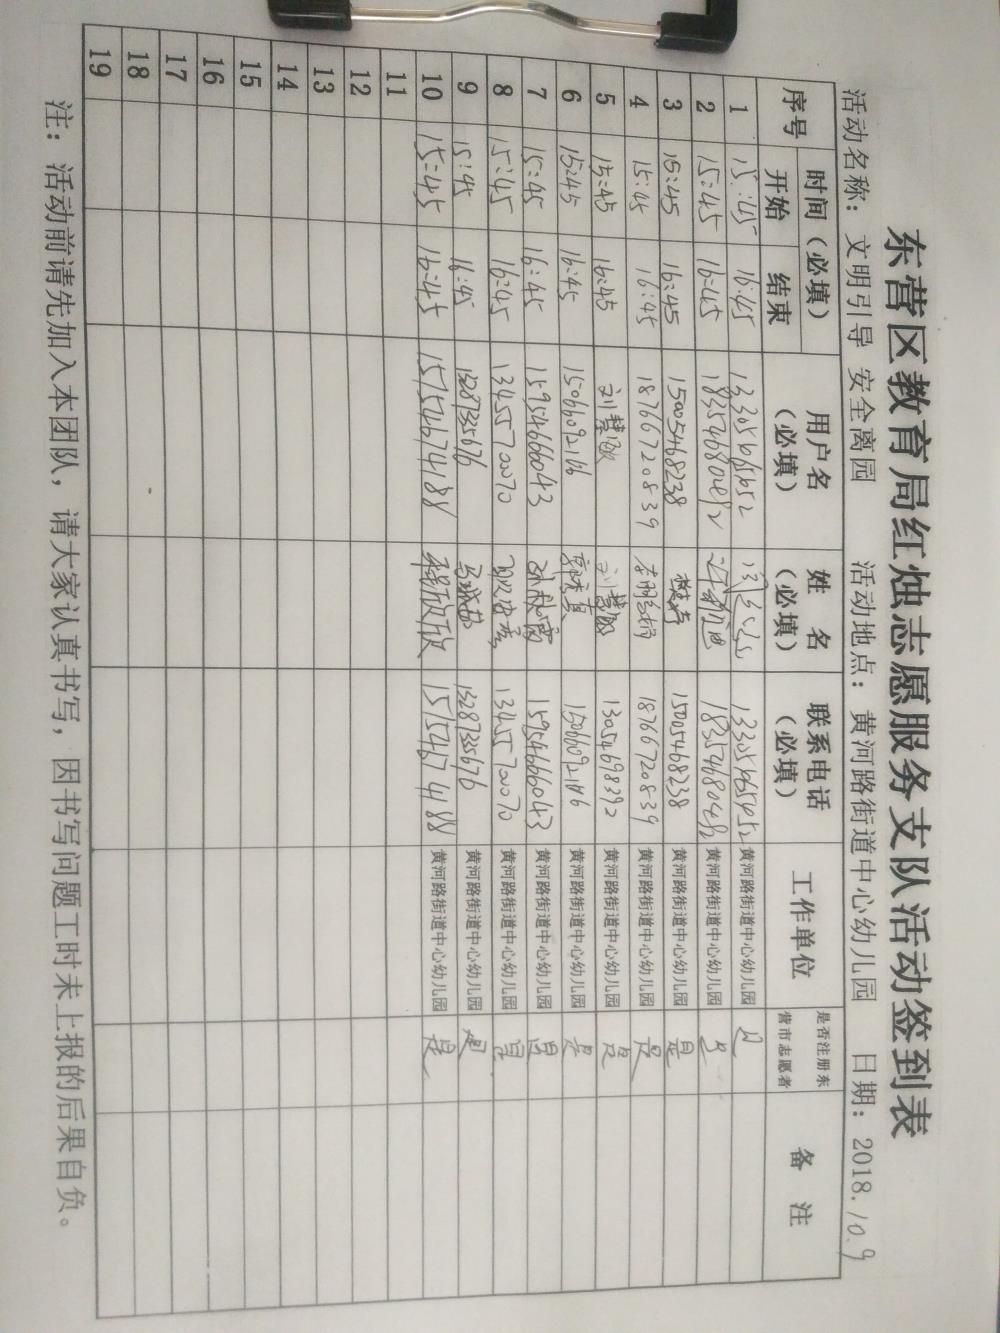 东营区教育局红烛志愿服务支队活动签到表
活动名称：文明引导 安全离园 活动地点：黄河路街道中心幼儿园 日期：2018.10.9
序号 时间（必填） 用户名（必填） 姓 名（必填） 联系电话（必填） 工作单位 是否注册东营市志愿者 备 注
开始 结束
1 15:45 16:45 13305465052 黄河路街道中心幼儿园 是
2 15:45 16:45 黄河路街道中心幼儿园 是
3 15:45 16:45 15005468238 15005468238 黄河路街道中心幼儿园 是
4 15:45 16:45 18766720839 18766720839 黄河路街道中心幼儿园 是
5 15:45 16:45 刘慧敏 刘慧敏 13054698392 黄河路街道中心幼儿园 是
6 15:45 16:45 15066092166 郭秀真 黄河路街道中心幼儿园 是
7 15:45 16:45 15954666043 孙秋霞 15954666043 黄河路街道中心幼儿园 是
8 15:45 16:45 13455700070 13455700070 黄河路街道中心幼儿园 是
9 15:45 16:45 13287335676 13287335676 黄河路街道中心幼儿园 是
10 15:45 16:45 15154674188 程欣欣 15154674188 黄河路街道中心幼儿园 是
11
12
13
14
15
16
17
18
19
注：活动前请先加入本团队，请大家认真书写，因书写问题工时未上报的后果自负。